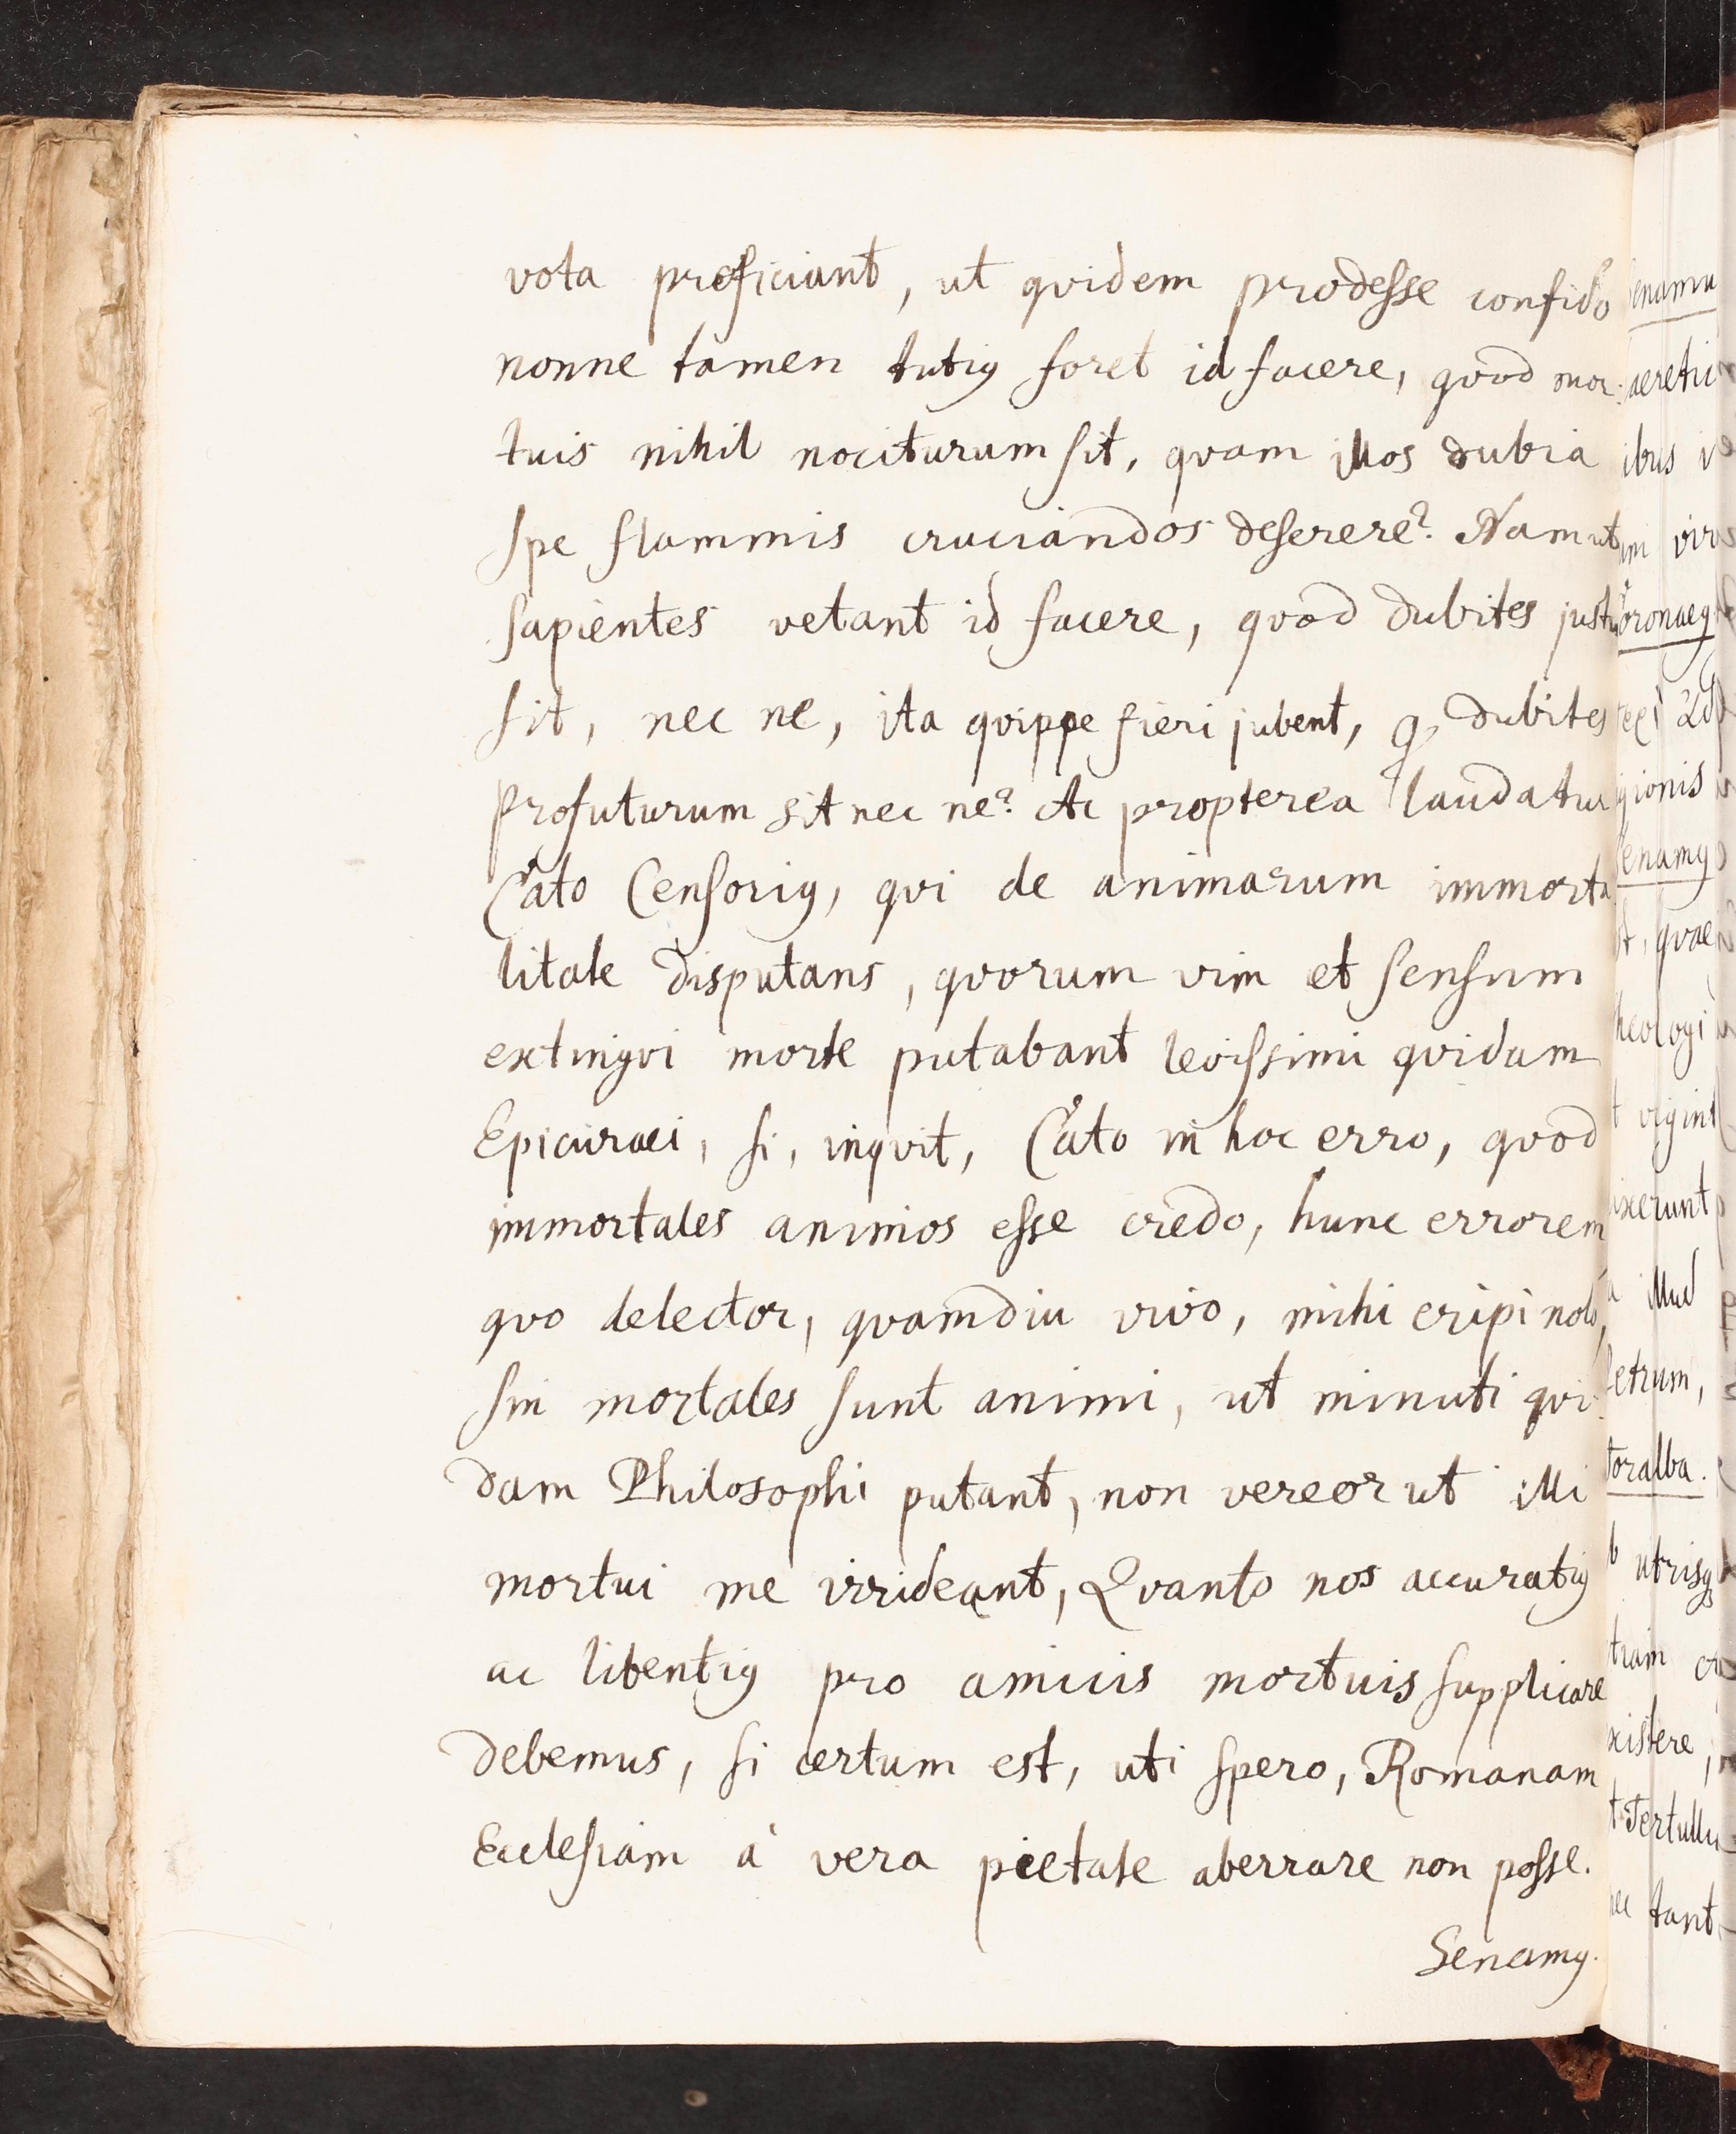 vota proficiant, ut quidem prodesse confido
nonne tamen tutiꝰ foret id facere, quod mor-
tuis nihil nociturum sit, quam illos dubia
spe flammis cruciandos deserere? Nam ut
sapientes vetant id facere, quod dubites justu
sit, nec ne, ita quippe fieri jubent, q dubites
profuturum sit nec ne? Ac propterea laudatur
Cato Censoriꝰ, qui de animarum immorta
litate disputans, quorum vim et sensum
extingvi morte putabant levissimi quidam
Epicuraei, si, inqvit, Cato in hoc erro, quod
immortales animos esse credo, hunc errorem
quo delector, quamdiu vivo, mihi eripi nolo,
sin mortales sunt animi, ut minuti qui-
dam Philosophi putant, non vereor ut illi
mortui me irrideant, Quanto nos accuratiꝰ
ac libentiꝰ pro amicis mortuis supplicare
debemus, si certum est, uti spero, Romanam
Ecclesiam à vera pietate aberrare non posse.
Senamꝰ.